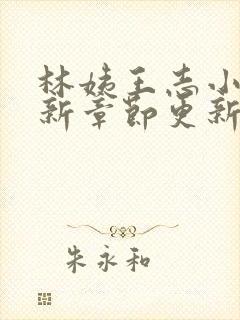 林姨王志小
新章节更新
朱永和